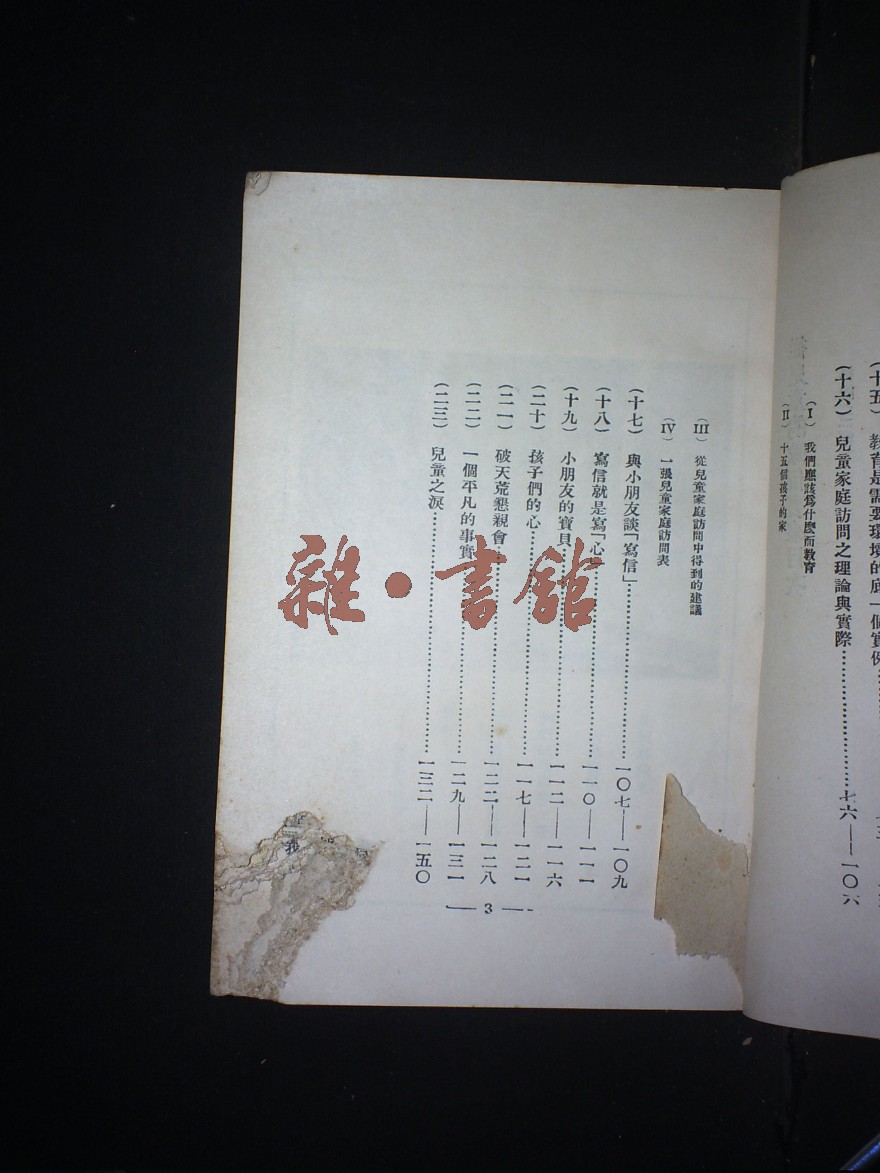 (十五) 教育是需要環境的底一個實例
(十六) 兒童家庭訪問之理論與實際……七六——一〇六
(I) 我們應該爲什麼而教育
(II) 十五個孩子的家
(III) 從兒童家庭訪問中得到的建議
(IV) 一張兒童家庭訪問表
(十七) 與小朋友談「寫信」……一〇七——一〇九
(十八) 寫信就是寫「心」……一一〇——一一一
(十九) 小朋友的寶貝……一一二——一一六
(二十) 孩子們的心……一一七——一二一
(二一) 破天荒懇親會……一二二——一二八
(二二) 一個平凡的事實……一二九——一三一
(二三) 兒童之淚……一三二——一五〇
— 3 —
我
雜·書館